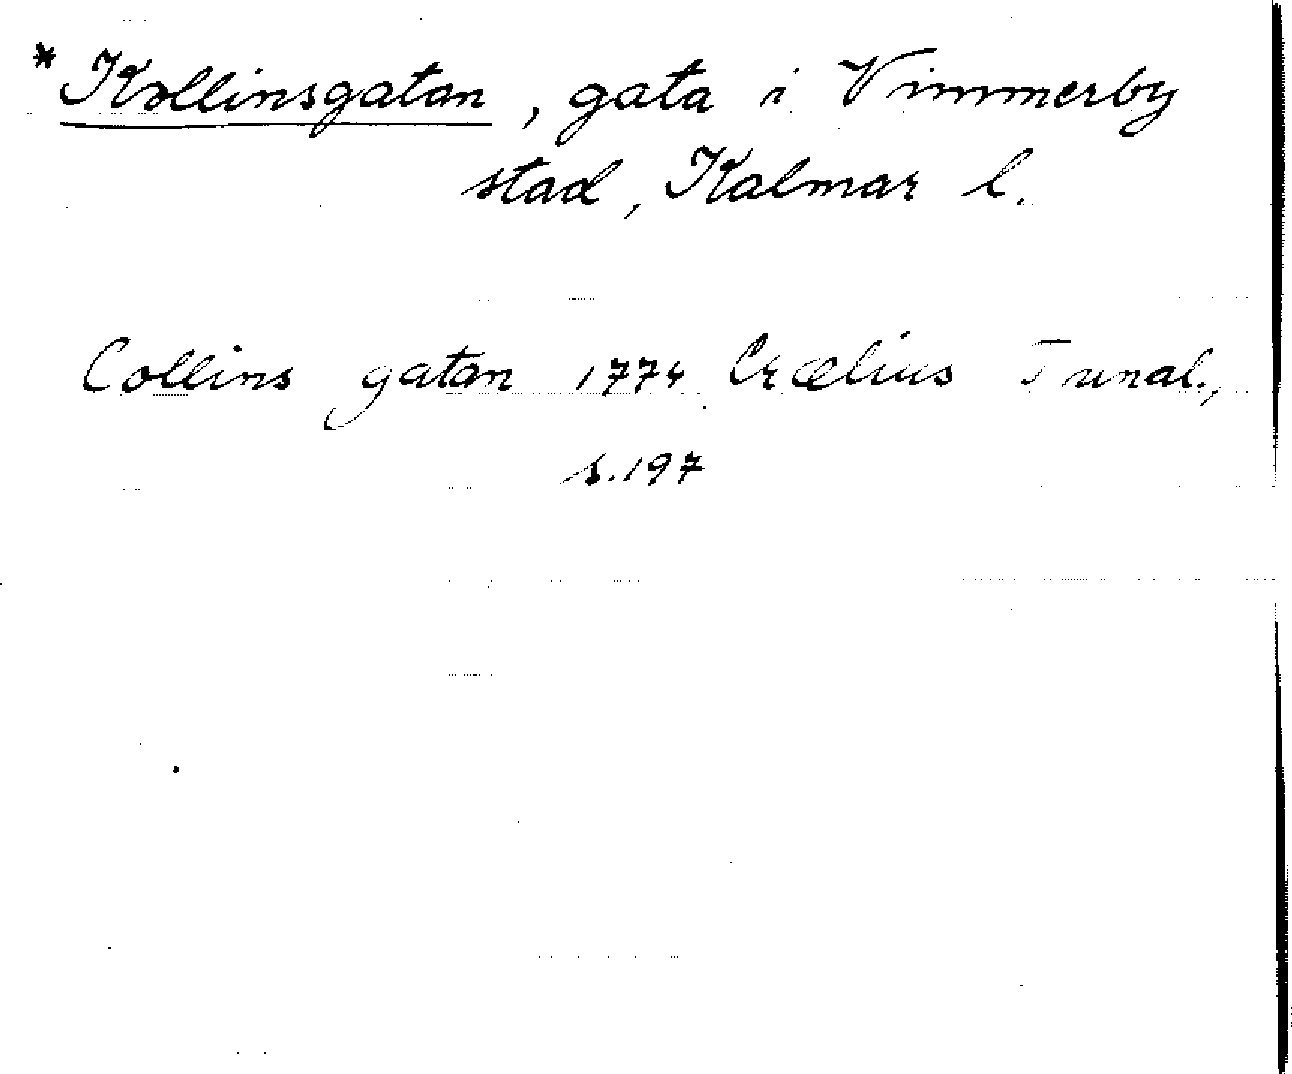 * Kollinsgatan, gata i Vimmerby
stad, Kalmar l.
Collins gatan 1774 Crælius Tunal.,
s. 197